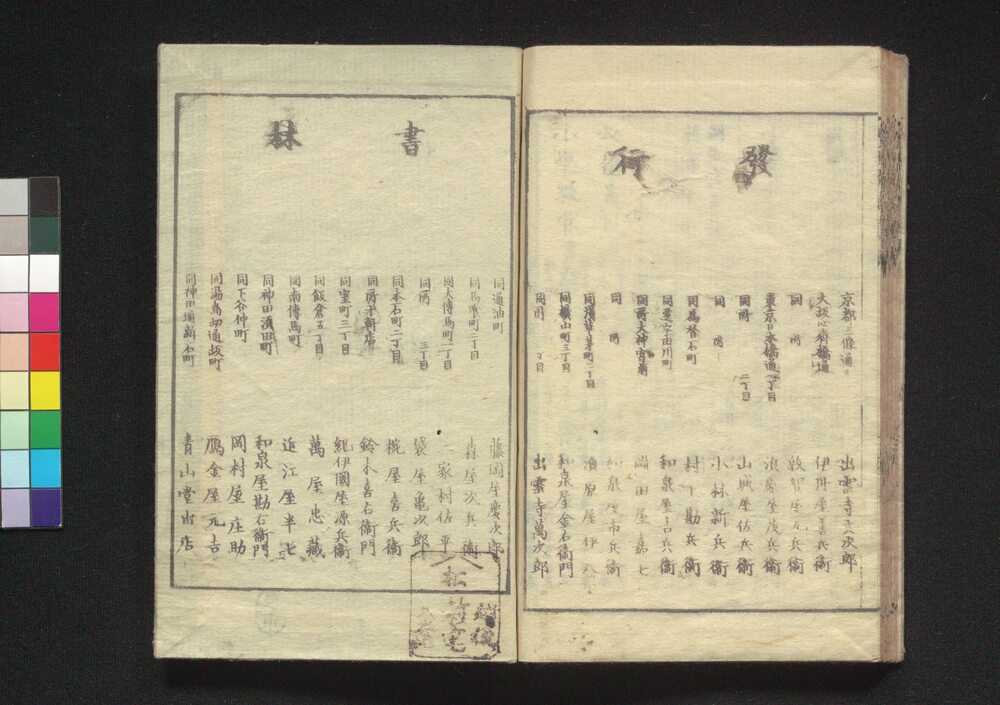 發行
京都三條通
出雲寺文次郎
大阪心斎橋通
伊丹屋善兵衞
同所
敦賀屋九兵衞
東京日本橋通一丁目
須原屋茂兵衞
同所 二丁目
山城屋佐兵衞
同所
小林新兵衞
同 石町
村上勘兵衞
同 川町
和泉屋吉兵衞
同所大神宮前
岡田屋嘉七
同所
和泉屋市兵衞
同淺草茅町二丁目
須原屋伊八
同横山町三丁目
和泉屋金右衞門
同所 丁目
出雲寺萬次郎
書林
同通油町
藤岡屋慶次郎
同馬喰町二丁目
森屋次兵衞
同大傳馬町二丁目
家村佐平
同所 三丁目
袋屋亀次郎
同本石町二丁目
椀屋喜兵衞
同所十軒店
鈴木喜右衞門
同室町三丁目
紀伊國屋源兵衞
同飯倉五丁目
萬屋忠藏
同南傳馬町
近江屋半七
同神田須田町
和泉屋勘右衞門
同下谷仲町
岡村屋庄助
同湯島切通坂町
鴈金屋元吉
同神田通新石町
青山堂出店